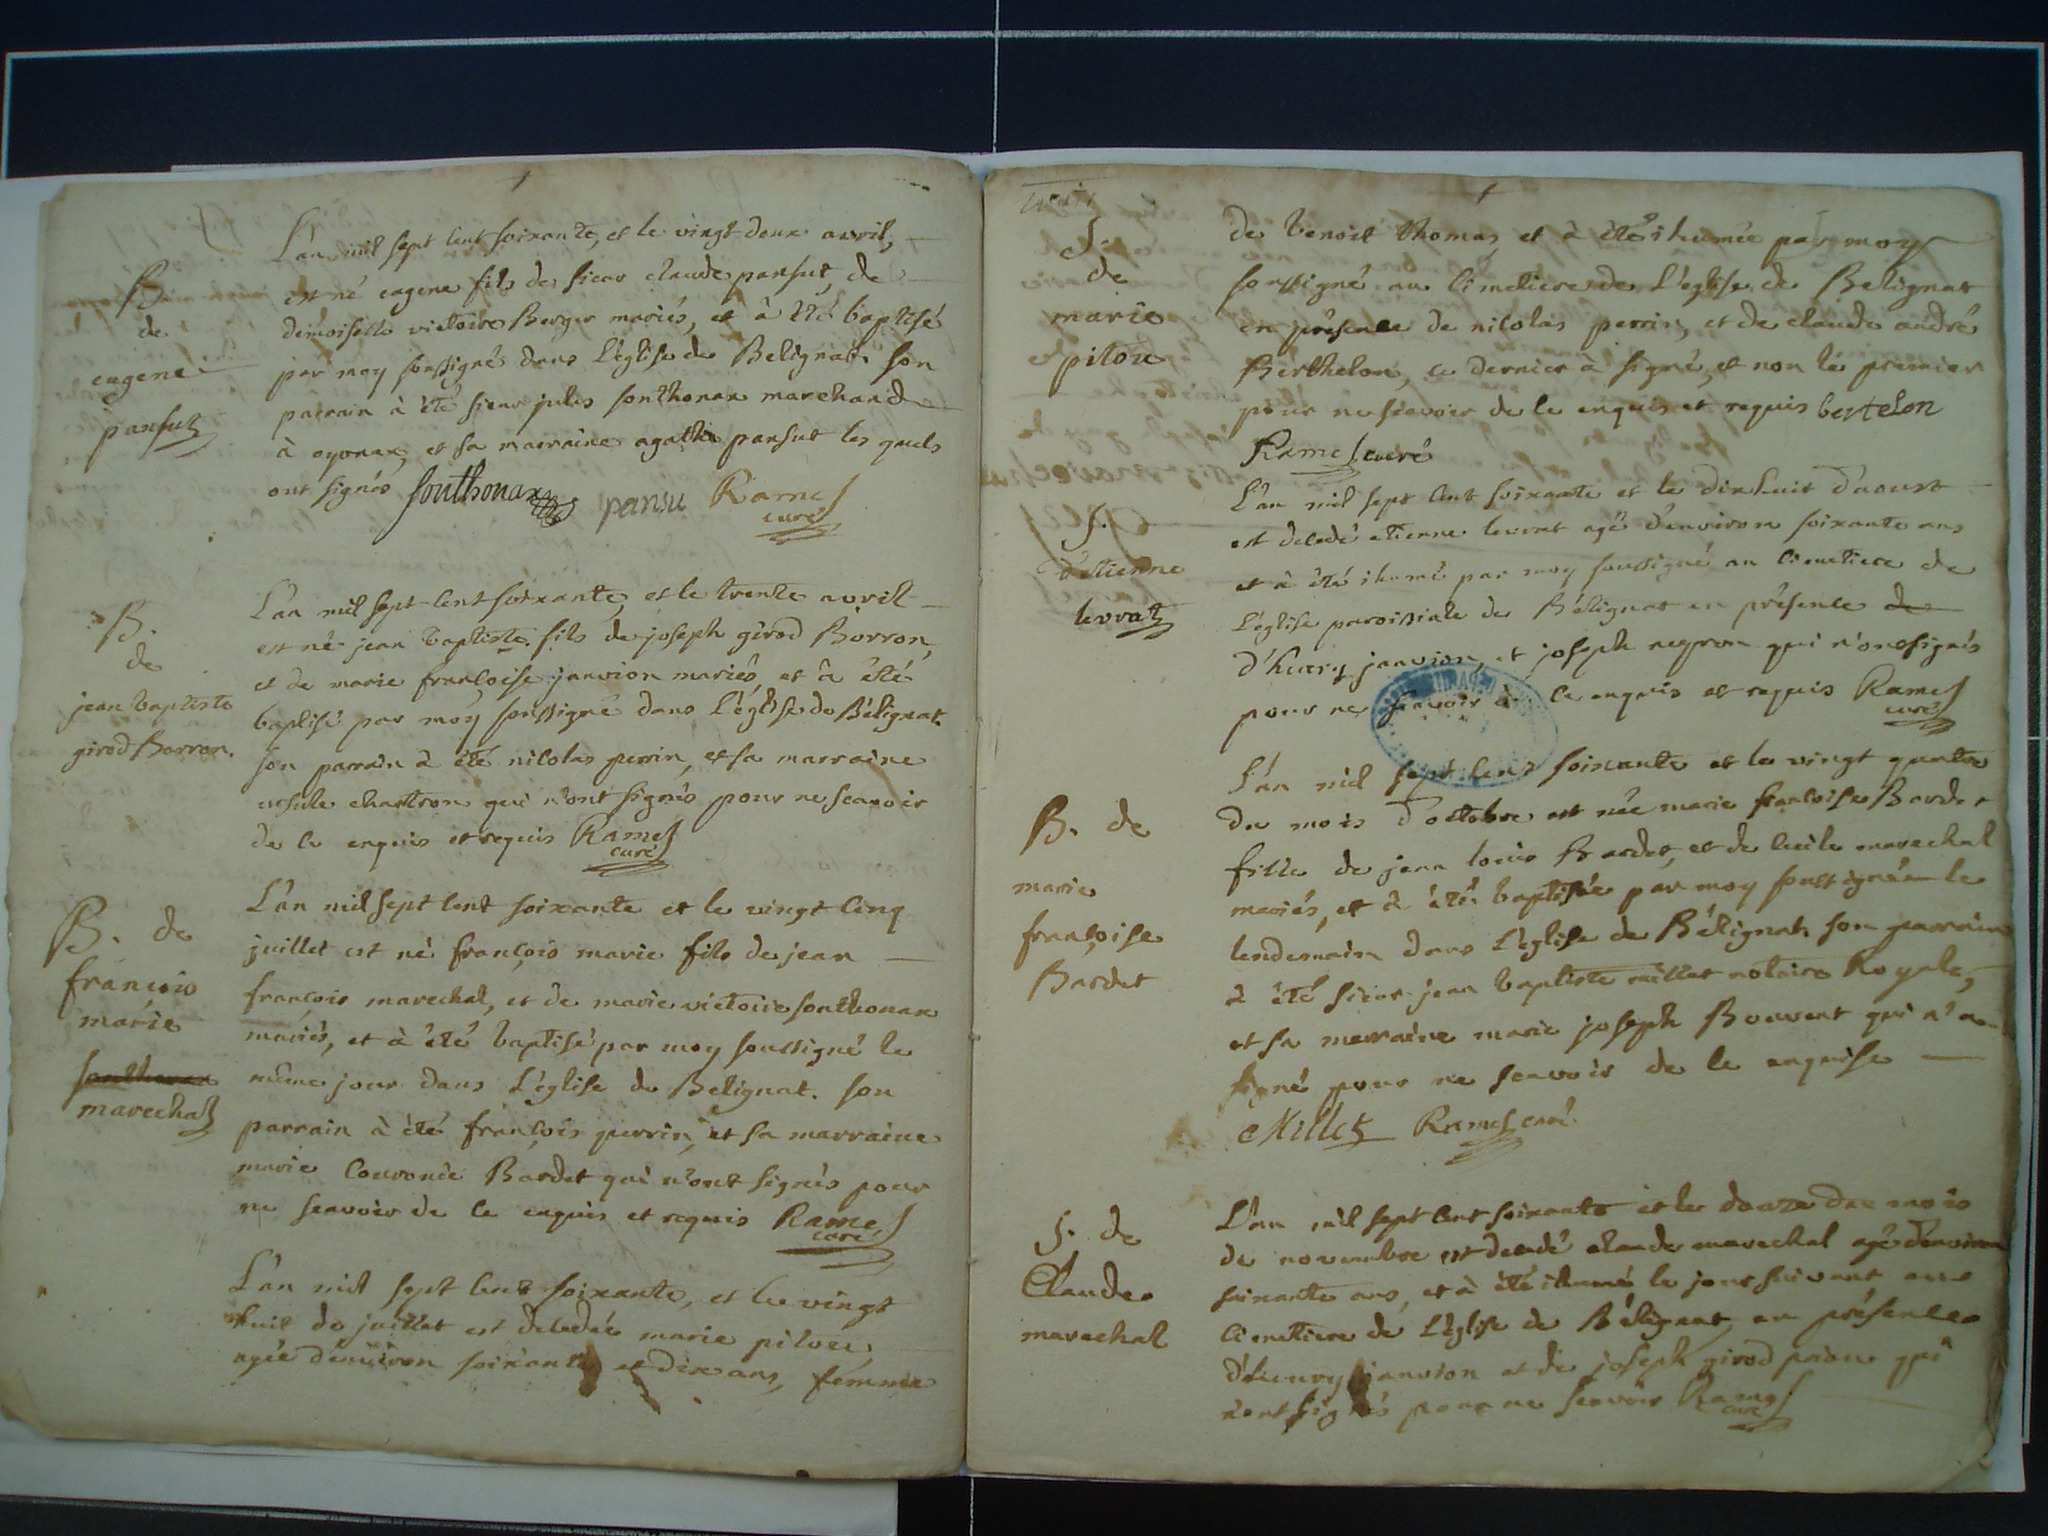 B.
de
eugene
pansut
L'an mil sept cent soixante, et le vingt-deux avril,
est né eugene fils de sieur claude pansut, de
demoiselle victoire Berger mariés, et à été baptisé
par moy soussigné dans L'église de Belignat. son
parrain à été sieur jules sonthonax marchand
à oyonax, et sa marraine agathe pansut les quels
ont signés sonthonax pansu Rames
curé
B.
de
jean baptiste
girod Borron.
L'an mil sept cent soixante, et le trente avril
est né jean baptiste fils de joseph girod Borron,
et de marie françoise janvion mariés, et à été
baptisé par moy soussigné dans L'église de Bélignat.
son parrain à été nicolas perrin, et sa marraine
ursule chartron qui n'ont signés pour ne scavoir
de ce enquis et requis Rames
curé
B. de
francois
marie
sonthonax
marechal
L'an mil sept cent soixante et le vingt cinq
juillet est né françois marie fils de jean
françois marechal, et de marie victoire sonthonax
mariés, et à été baptisé par moy soussigné le
même jour dans L'église de Belignat. son
parrain à été françois perrin, et sa marraine
marie Couronée Bardet qui n'ont signés pour
ne scavoir de ce enquis et requis Rames
curé
L'an mil sept cent soixante, et le vingt
huit de juillet est decedée marie piloue
agée d'environ soixante et dix ans, femme
S.
de
marie
piloue
de benoit thomas, et à été ihumée par moy
soussigné au cimetiere de L'eglise de Belignat
en présence de nicolas perrin, et de claude andré
Berthelon, ce dernier à signé, et non le premier
pour ne scavoir de ce enquis et requis bertelon
Rames curé
S.
d'etienne
levrat
L'an mil sept cent soixante et le dixhuit d'aoust
est decedé etienne levrat agé d'environ soixante ans
et à été ihumé par moy soussigné au cimetiere de
L'église paroissiale de Bélignat en présence de
d'henry janvion, et joseph neyron qui n'ont signés
pour ne scavoir de ce enquis et requis Rames
curé
B. de
marie
françoise
Bardet
L'an mil sept cent soixante et le vingt quatre
du mois d'octobre est née marie françoise Bardet
fille de jean louis Bardet, et de cecile marechal
mariés, et à été baptisée par moy soussigné le
lendemain dans L'église de Bélignat. son parrain
à été sieur jean baptiste millet notaire Royale,
et sa marraine marie joseph Bouvent qui n'a
signé pour ne scavoir de ce enquise
Millet Rames curé
S. de
Claude
marechal
L'an mil sept cent soixante et le douze du mois
de novembre est decedé claude marechal agé d'environ
soixante ans, et à été ihumé le jour suivant au
cimetiere de L'église de Bélignat, en présence
d'henry janvion et de joseph girod prion qui
n'ont signés pour ne scavoir Rames
curé